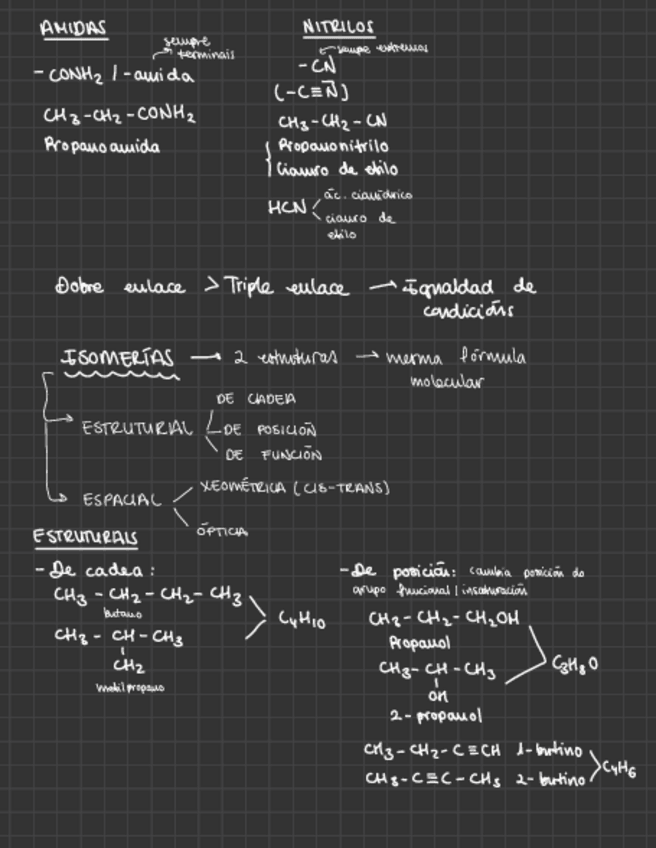 AMIDAS
sempre
terminais
- CONH₂ / - amida
CH₃-CH₂-CONH₂
Propanoamida
NITRILOS
sempre extremos
- CN
(-C≡N)
CH₃-CH₂-CN
Propanonitrilo
Cianuro de etilo
HCN
ác. cianhídrico
cianuro de
etilo
Dobre enlace > Triple enlace → Igualdad de
condicións
ISOMERÍAS → 2 estruturas → mesma fórmula
molecular
ESTRUTURAL
DE CADEA
DE POSICIÓN
DE FUNCIÓN
ESPACIAL
XEOMÉTRICA (CIS-TRANS)
ÓPTICA
ESTRUTURAIS
- De cadea:
CH₃ - CH₂ - CH₂ - CH₃
butano
CH₃ - CH - CH₃
CH₂
metilpropano
C₄H₁₀
- De posición: cambia posición do
grupo funcional / insaturación
CH₃ - CH₂ - CH₂OH
Propanol
CH₃ - CH - CH₃
OH
2-propanol
C₃H₈O
CH₃ - CH₂ - C≡CH 1-butino
CH₃ - C≡C - CH₃ 2-butino
C₄H₆